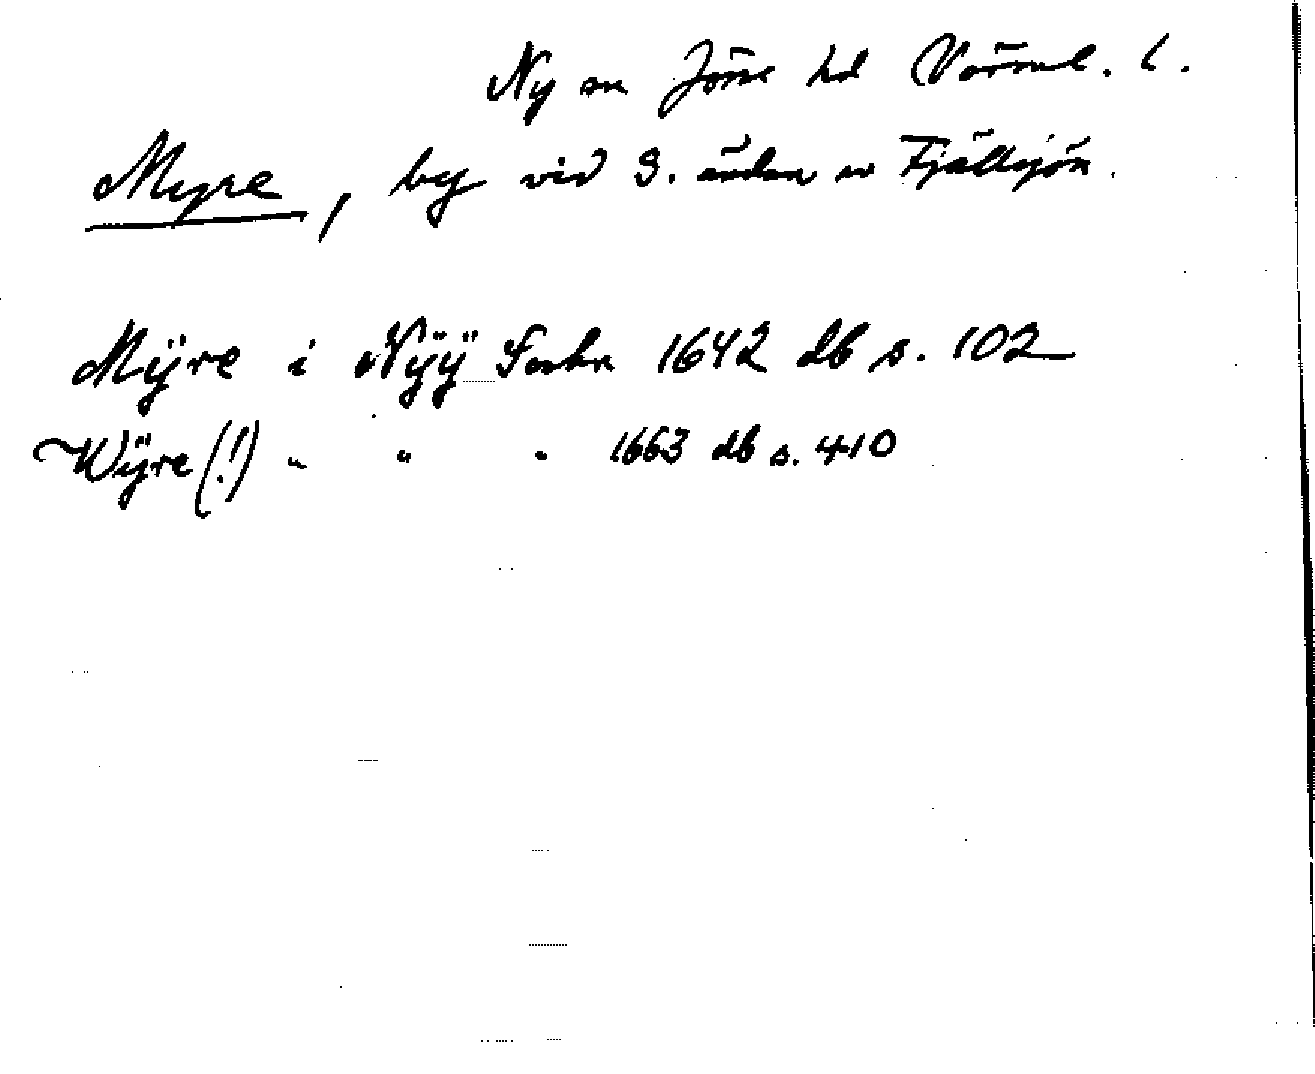 Ny sn Jösse hd Värml. l.
Myre, by vid S. ändan av Fjällsjön.
Mÿre i Nÿÿ Sokn 1642 db s. 102
Wÿre (!) " " " 1663 db s. 410